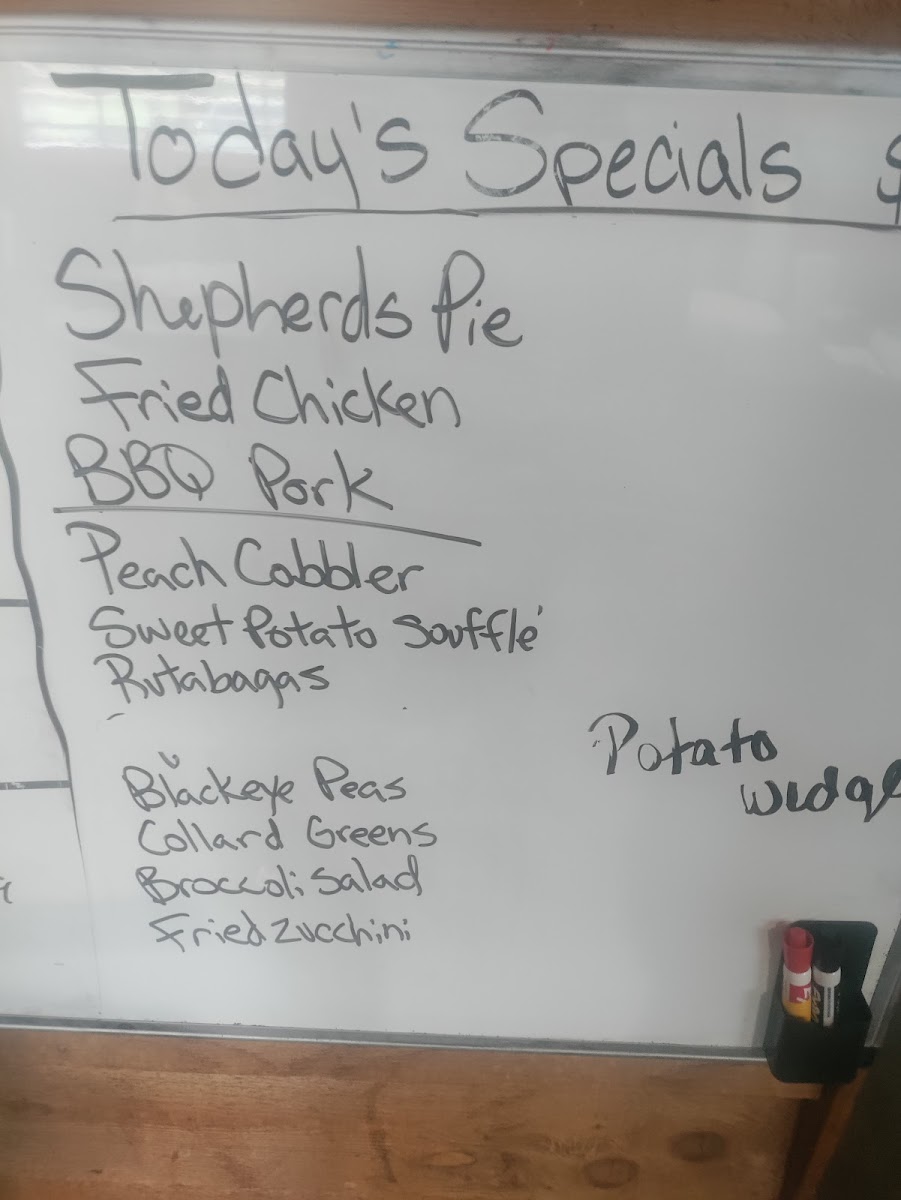 Today's Specials $
Shepherds Pie
Fried Chicken
BBQ Pork
Peach Cobbler
Sweet Potato Soufflé
Rutabagas
Potato
Blackeye Peas
Collard Greens
Broccoli Salad
Fried Zucchini